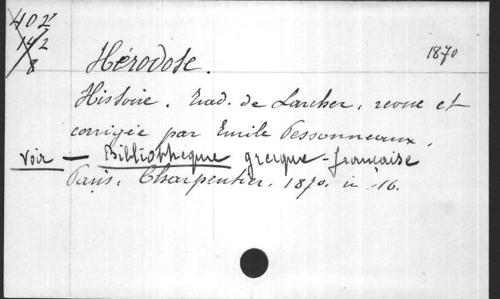 402
142
8
Hérodote.
1870
Histoire. Trad. de Larcher, revue et
corrigée par Emile Pessonneaux.
Voir — Bibliothèque grecque-française
Paris, Charpentier. 1870. in-16.